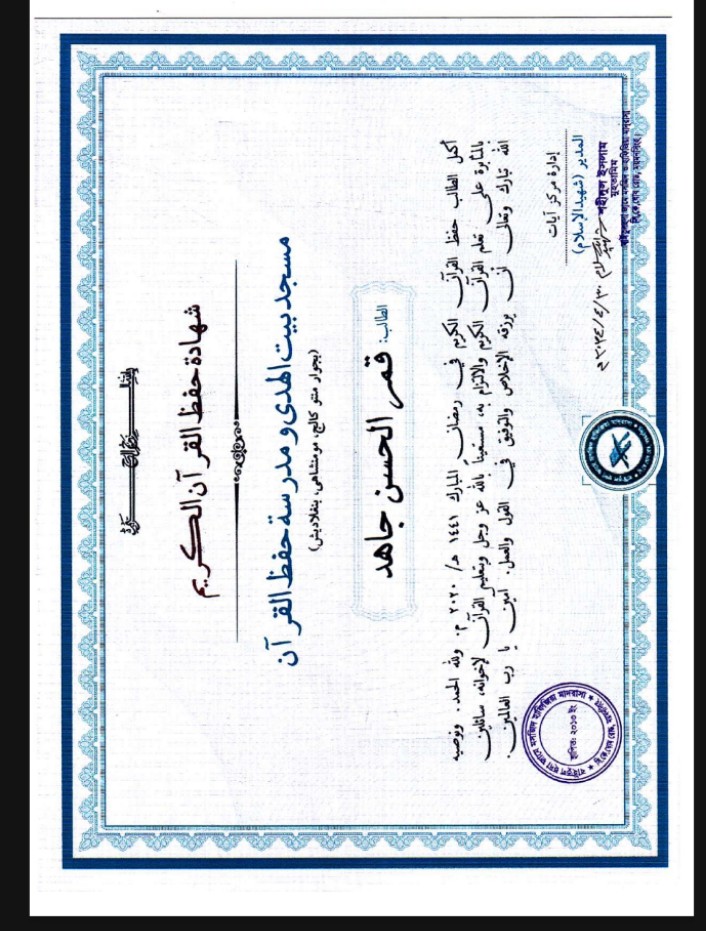 شهادة حفظ القرآن الكريم
مسجد بيت الهدى و مدرسة حفظ القرآن
(بجوار منتو كاليج، مومنشاهي، بنغلاديش)
الطالب:
قمر الحسن جاهد
أكمل الطالب حفظ القرآن الكريم في رمضان المبارك ١٤٤١ هـ/ ٢٠٢٠ م. ولله الحمد. ونوصيه
بالمثابرة على تعلم القرآن الكريم والالتزام به، مستعينا بالله عز وجل وبتعليم القرآن لإخوانه، سائلين
الله تبارك وتعالى أن يرزقه الإخلاص والتوفيق في القول والعمل. آمين يا رب العالمين.
إدارة مركز آيات
المدير (شهيد الإسلام)
শহীদুল ইসলাম
মুহতামিম
স্থাপিত: ২০১০ ইং